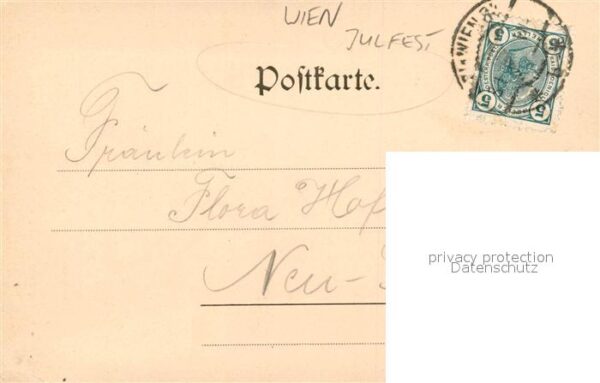 WIEN
JULFEST
WIEN
5 5
5 5
Postkarte.
Fräulein
Flora Hof
Neu-
privacy protection
Datenschutz